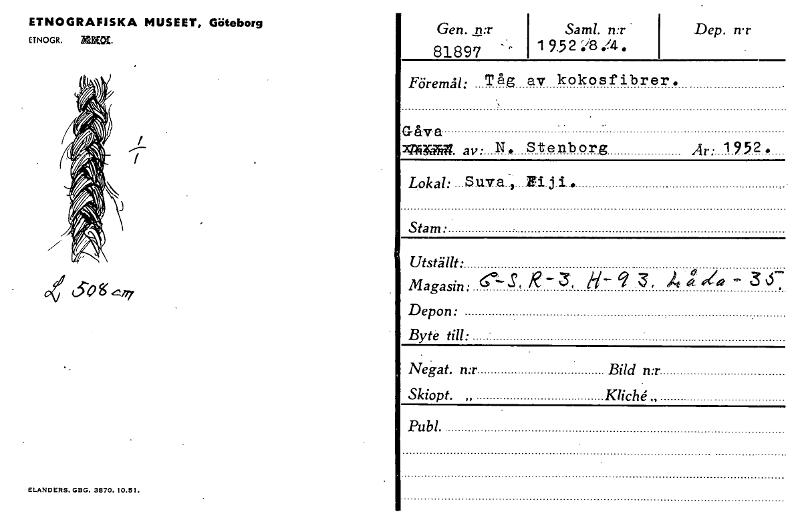 ETNOGRAFISKA MUSEET, Göteborg
ETNOGR.
1/1
L 508 cm
ELANDERS. GBG. 3870. 10.51.
Gen. n:r Saml. n:r Dep. n:r
81897 1952.8.4.
Föremål: Tåg av kokosfibrer.
Gåva
av: N. Stenborg År: 1952.
Lokal: Suva, Fiji.
Stam:
Utställt:
Magasin: G-S. R-3. H-93. Låda-35.
Depon:
Byte till:
Negat. n:r Bild n:r
Skiopt. „ Kliché „
Publ.